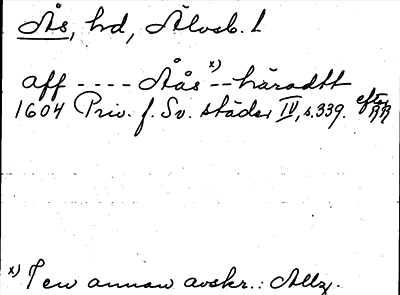 Ås, hd, Älvsb. l
aff ---- Åås x) -- häradtt
1604 Priv. f. Sv. städer IV, s. 339. efter RR
x) I en annan avskr.: Allz.